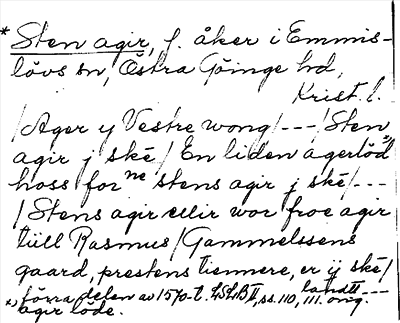 * Sten agir, f. åker i Emmis-
lövs sn, Östra Göinge hd,
Krist. l.
/Ager y Vestre wong/---/Sten
agir j ské/ En liden agerlöd"
hoss for ne stens agir j ské/---
/Stens agir ellir wor froe agir
tiill Rasmus/Gammelssens
gaard, prestens tiennere, er ij ské/
förra delen av 1570-t. LSLB II, ss. 110, 111. ong. landtt ---
agir löde.